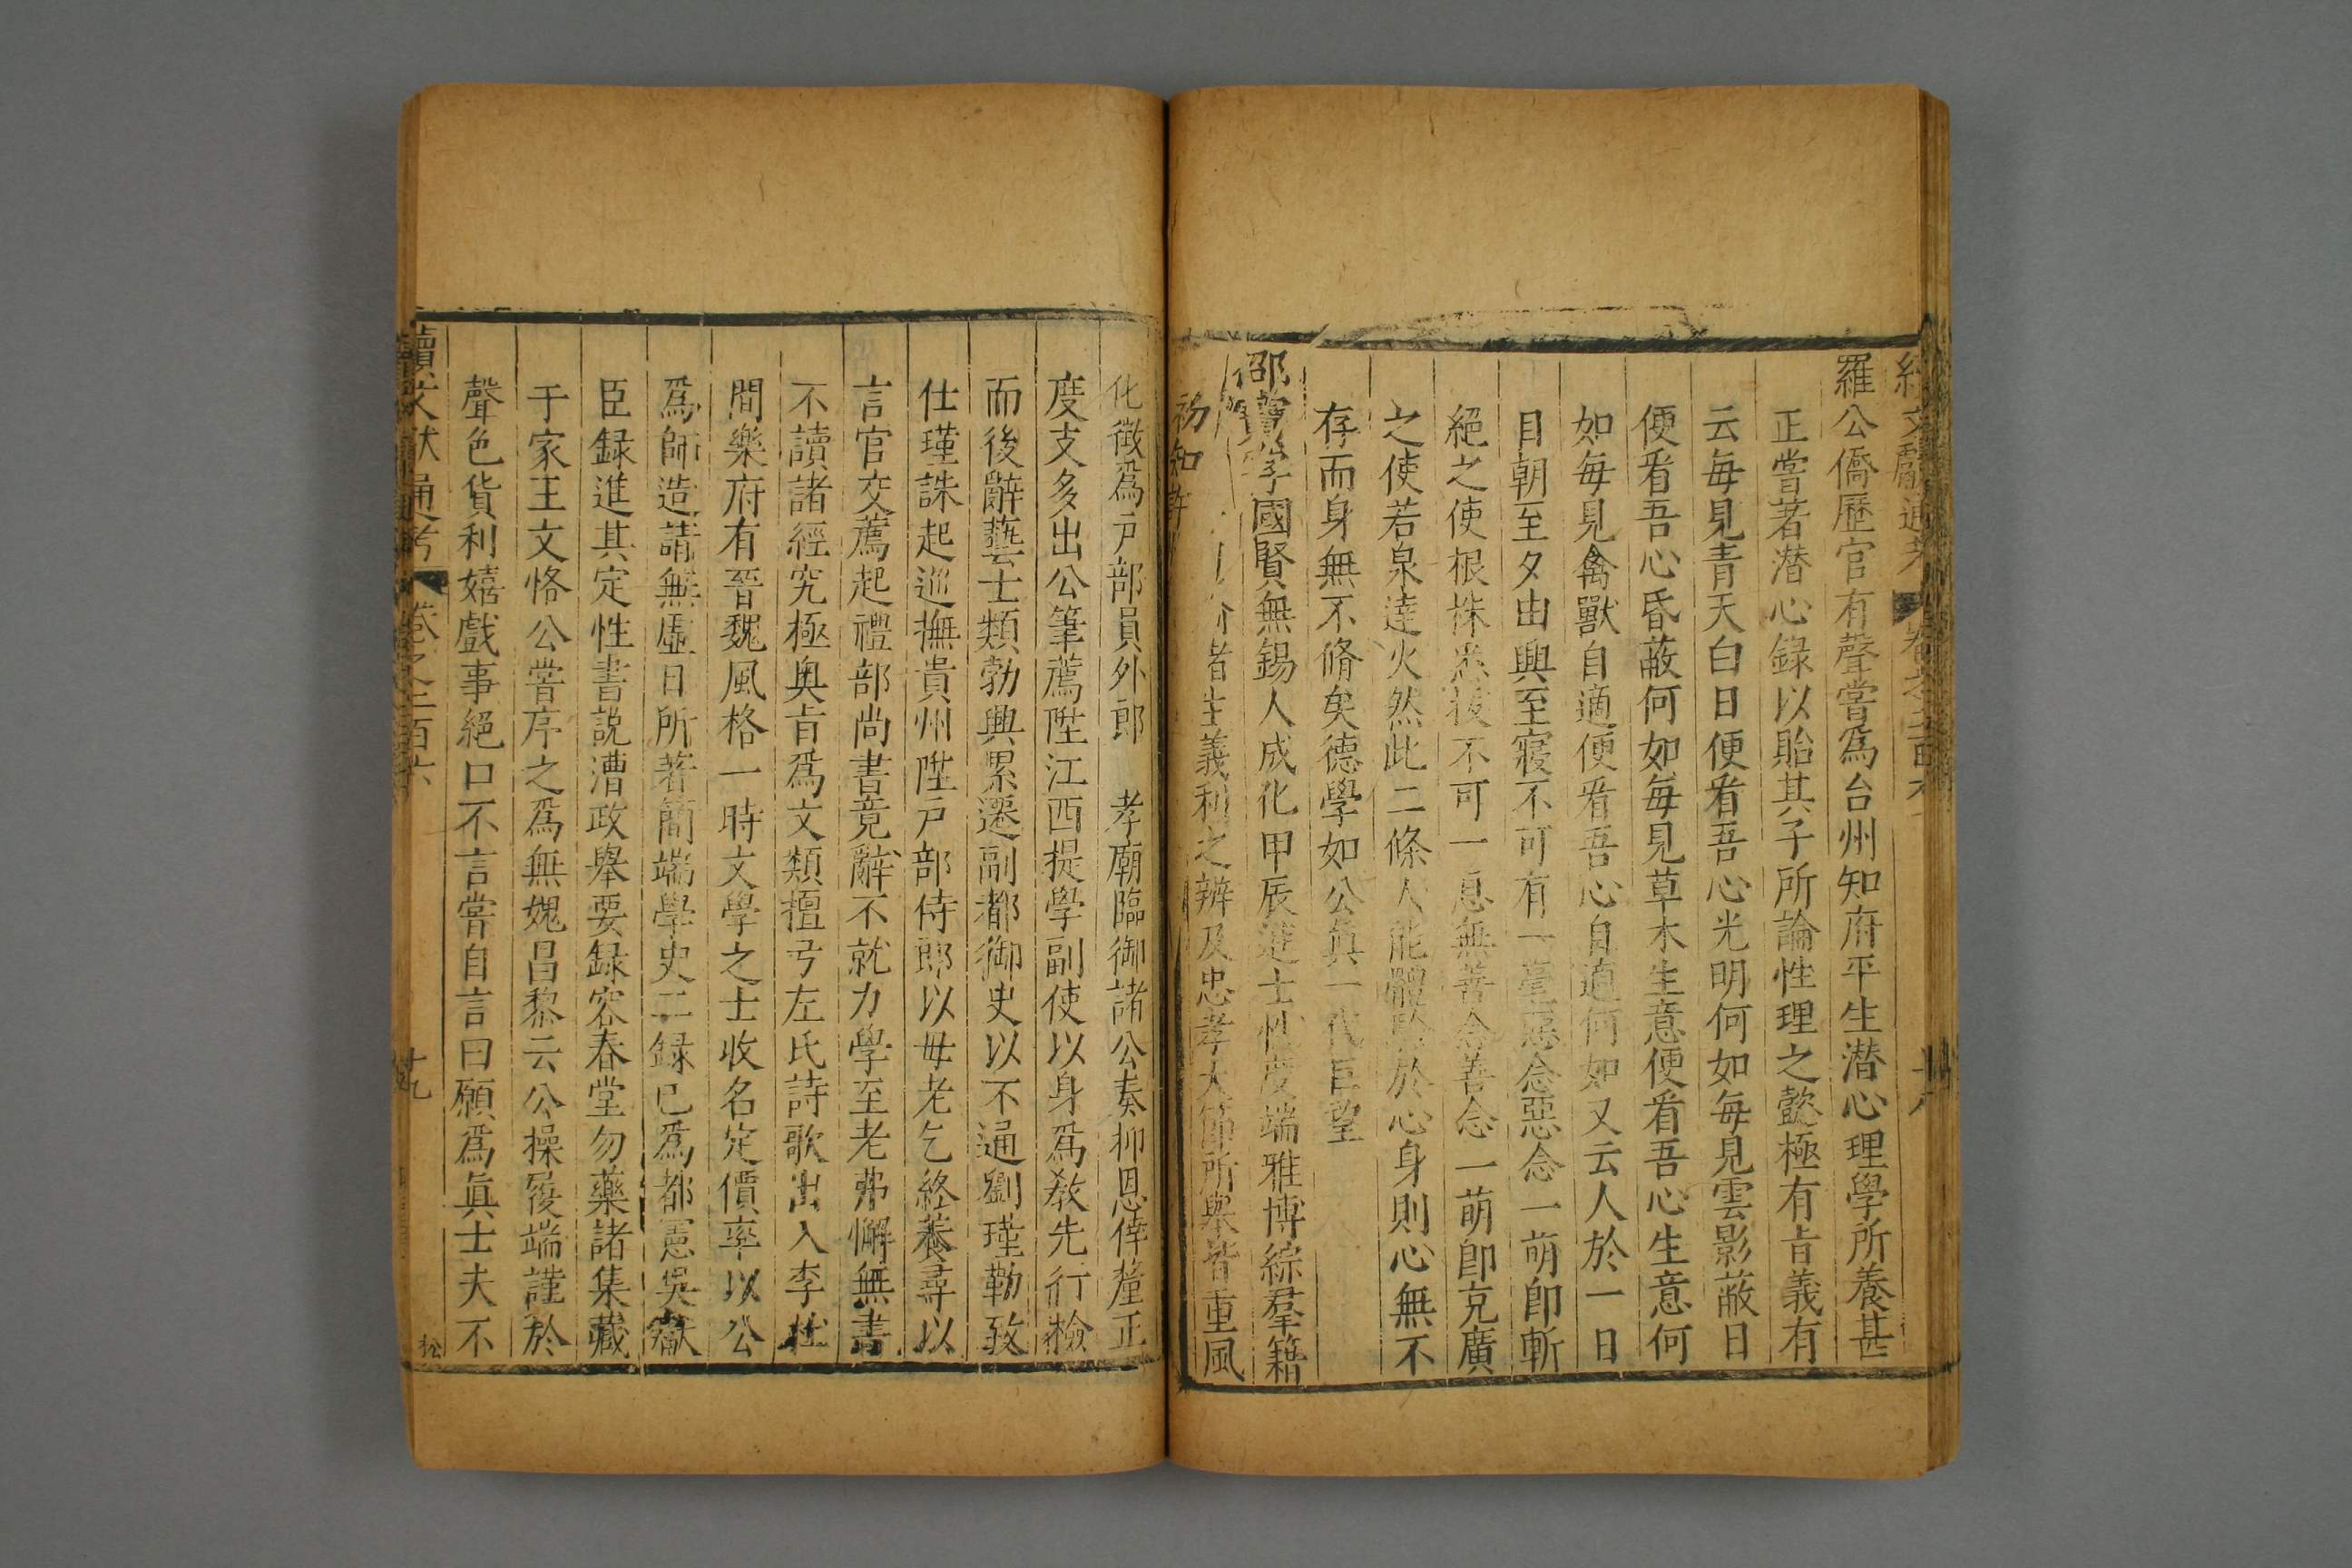 文獻通考 卷之二百六
羅公僑歷官有聲嘗爲台州知府平生潜心理學所養甚
正嘗著潜心録以貽其子所論性理之懿極有㫖義有
云每見青天白日便看吾心光明何如每見雲影蔽日
便看吾心昏蔽何如每見草木生意便看吾心生意何
如每見禽獸自適便看吾心自適何如又云人於一日
自朝至夕由興至寢不可有一毫惡念惡念一萌卽斬
絕之使根株悉拔不可一息無善念善念一萌卽克廣
之使若泉達火然此二條人能體驗於心身則心無不
存而身無不脩矣德學如公眞一代巨望
邵 國賢無錫人成化甲辰進士性度端雅博綜羣籍
初知許 者生義利之辨及忠孝大節所舉皆重風
化徵爲戸部員外郎 孝廟臨御諸公奏抑恩倖釐正
度支多出公筆薦陞江西提學副使以身爲敎先行檢
而後辭藝士類勃興累遷副都御史以不通劉瑾勒致
仕瑾誅起巡撫貴州陞戸部侍郎以毋老乞終養尋以
言官交薦起禮部尚書竟辭不就力學至老弗懈無書
不讀諸經究極奥㫖爲文類檀弓左氏詩歌出入李杜
間樂府有晉魏風格一時文學之士收名定價率以公
爲師造請無虛日所著簡端學史二録已爲都憲吳
臣録進其定性書說漕政舉要録容春堂勿藥諸集藏
于家王文恪公嘗序之爲無媿昌黎云公操履端謹於
聲色貨利嬉戲事絕口不言嘗自言曰願爲眞士夫不
續文獻通考 卷之二百六 十九 松